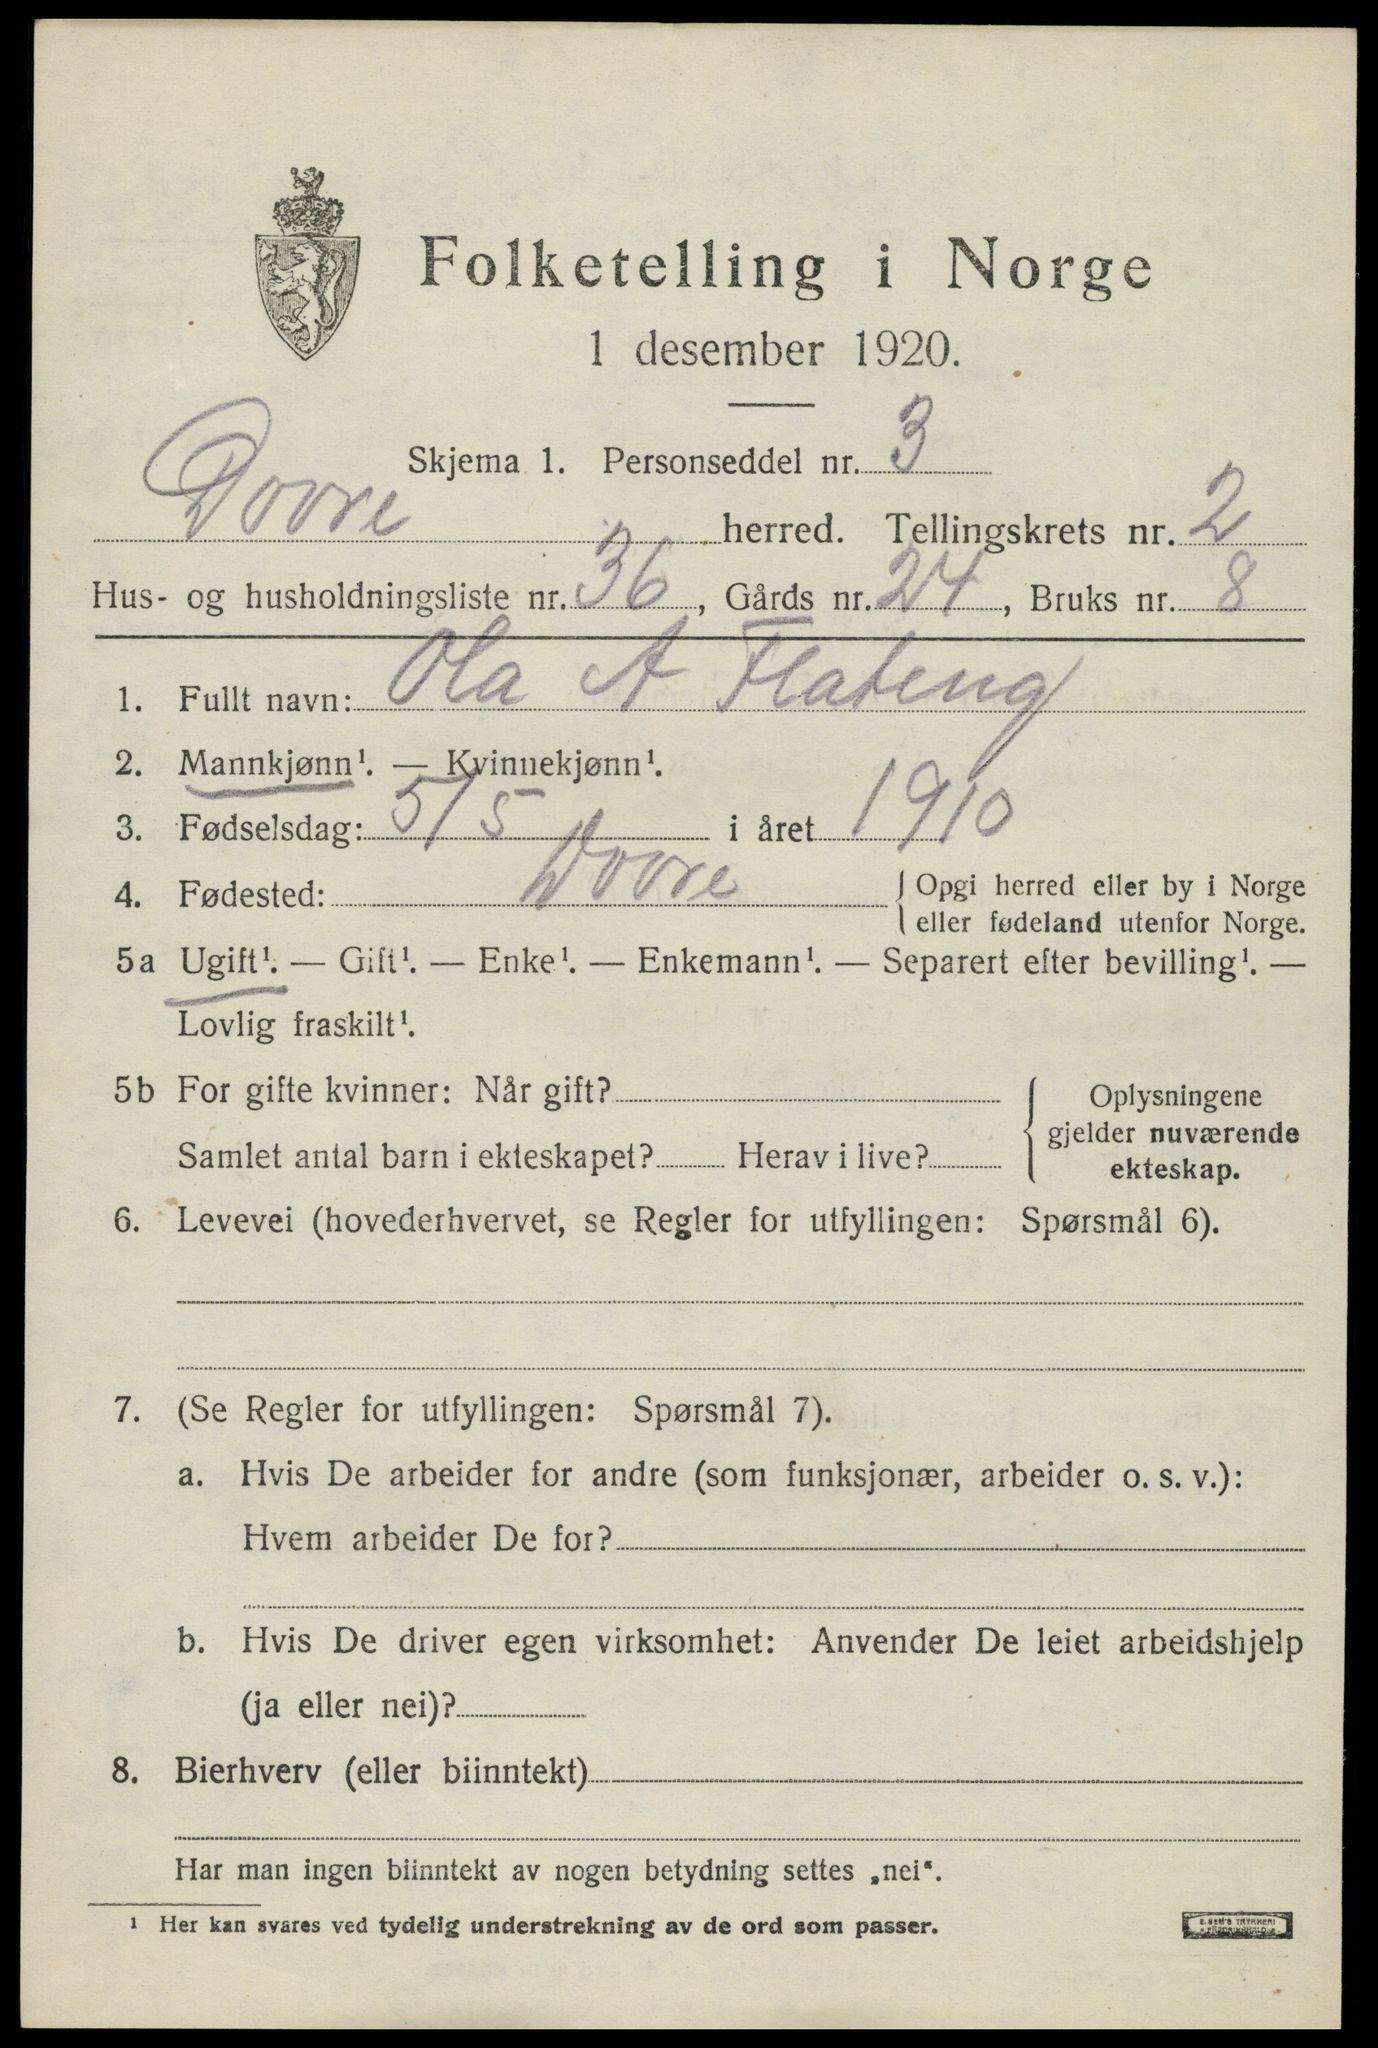 Folketelling i Norge
1 desember 1920.
Skjema 1. Personseddel nr. 3
Dovre herred. Tellingskrets nr. 2
Hus- og husholdningsliste nr. 36, Gårds nr. 24, Bruks nr. 8
1. Fullt navn: Ola A Flateng
2. Mannkjønn¹. — Kvinnekjønn¹.
3. Fødselsdag: 5/5 i året 1910
4. Fødested: Dovre { Opgi herred eller by i Norge
eller fødeland utenfor Norge.
5a Ugift¹. — Gift¹. — Enke¹. — Enkemann¹. — Separert efter bevilling¹. —
Lovlig fraskilt¹.
5b For gifte kvinner: Når gift?
Samlet antal barn i ekteskapet? Herav i live?
Oplysningene
gjelder nuværende
ekteskap.
6. Levevei (hovederhvervet, se Regler for utfyllingen: Spørsmål 6).
7. (Se Regler for utfyllingen: Spørsmål 7).
a. Hvis De arbeider for andre (som funksjonær, arbeider o. s. v.):
Hvem arbeider De for?
b. Hvis De driver egen virksomhet: Anvender De leiet arbeidshjelp
(ja eller nei)?
8. Bierhverv (eller biinntekt)
Har man ingen biinntekt av nogen betydning settes „nei“.
¹ Her kan svares ved tydelig understrekning av de ord som passer.
E. SEM'S TRYKKERI
FREDRIKSHALD